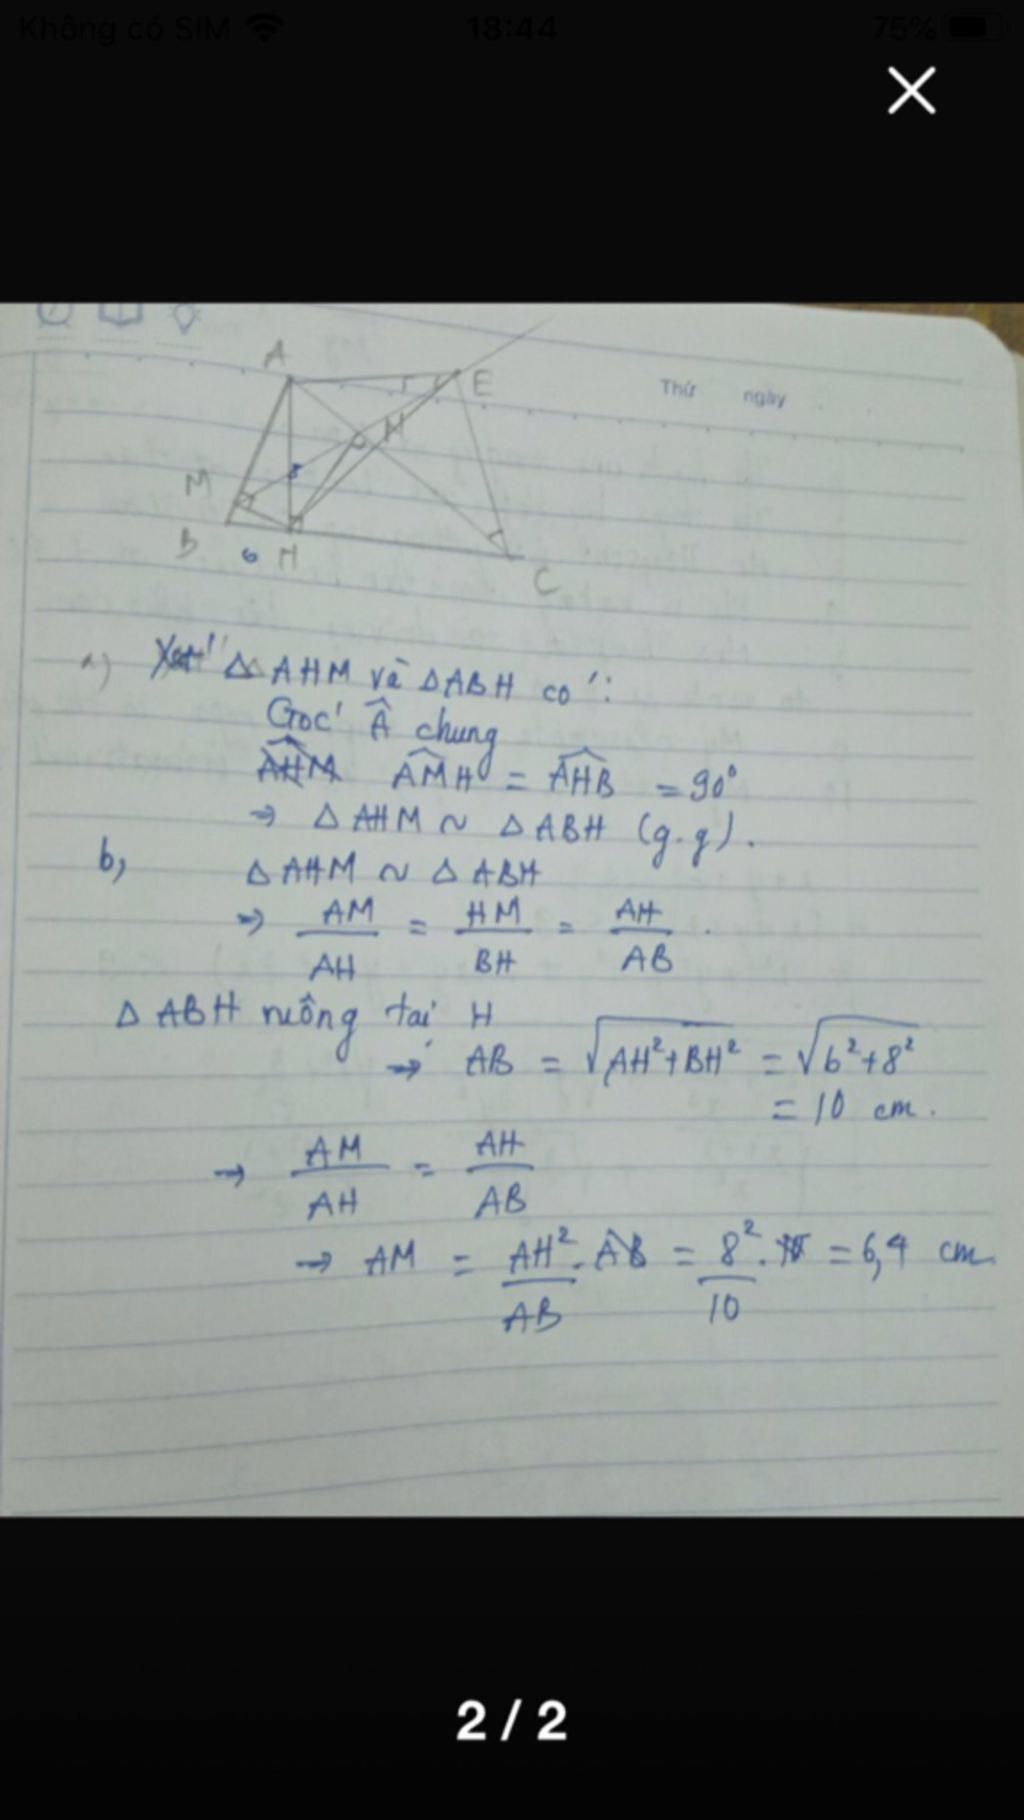 Không có SIM 18:44 75%
Thứ ngày
A E
N
M 8
B 6 H C
a) Xét ΔAHM và ΔABH có:
Góc Â chung
AHM AMH = AHB = 90°
→ Δ AHM ~ Δ ABH (g.g).
b, Δ AHM ~ Δ ABH
→ AM/AH = HM/BH = AH/AB.
Δ ABH vuông tại H
→ AB = √AH²+BH² = √6²+8²
= 10 cm.
→ AM/AH = AH/AB
→ AM = AH²/AB . AB = 8²/10 . 10 = 6,4 cm
2 / 2